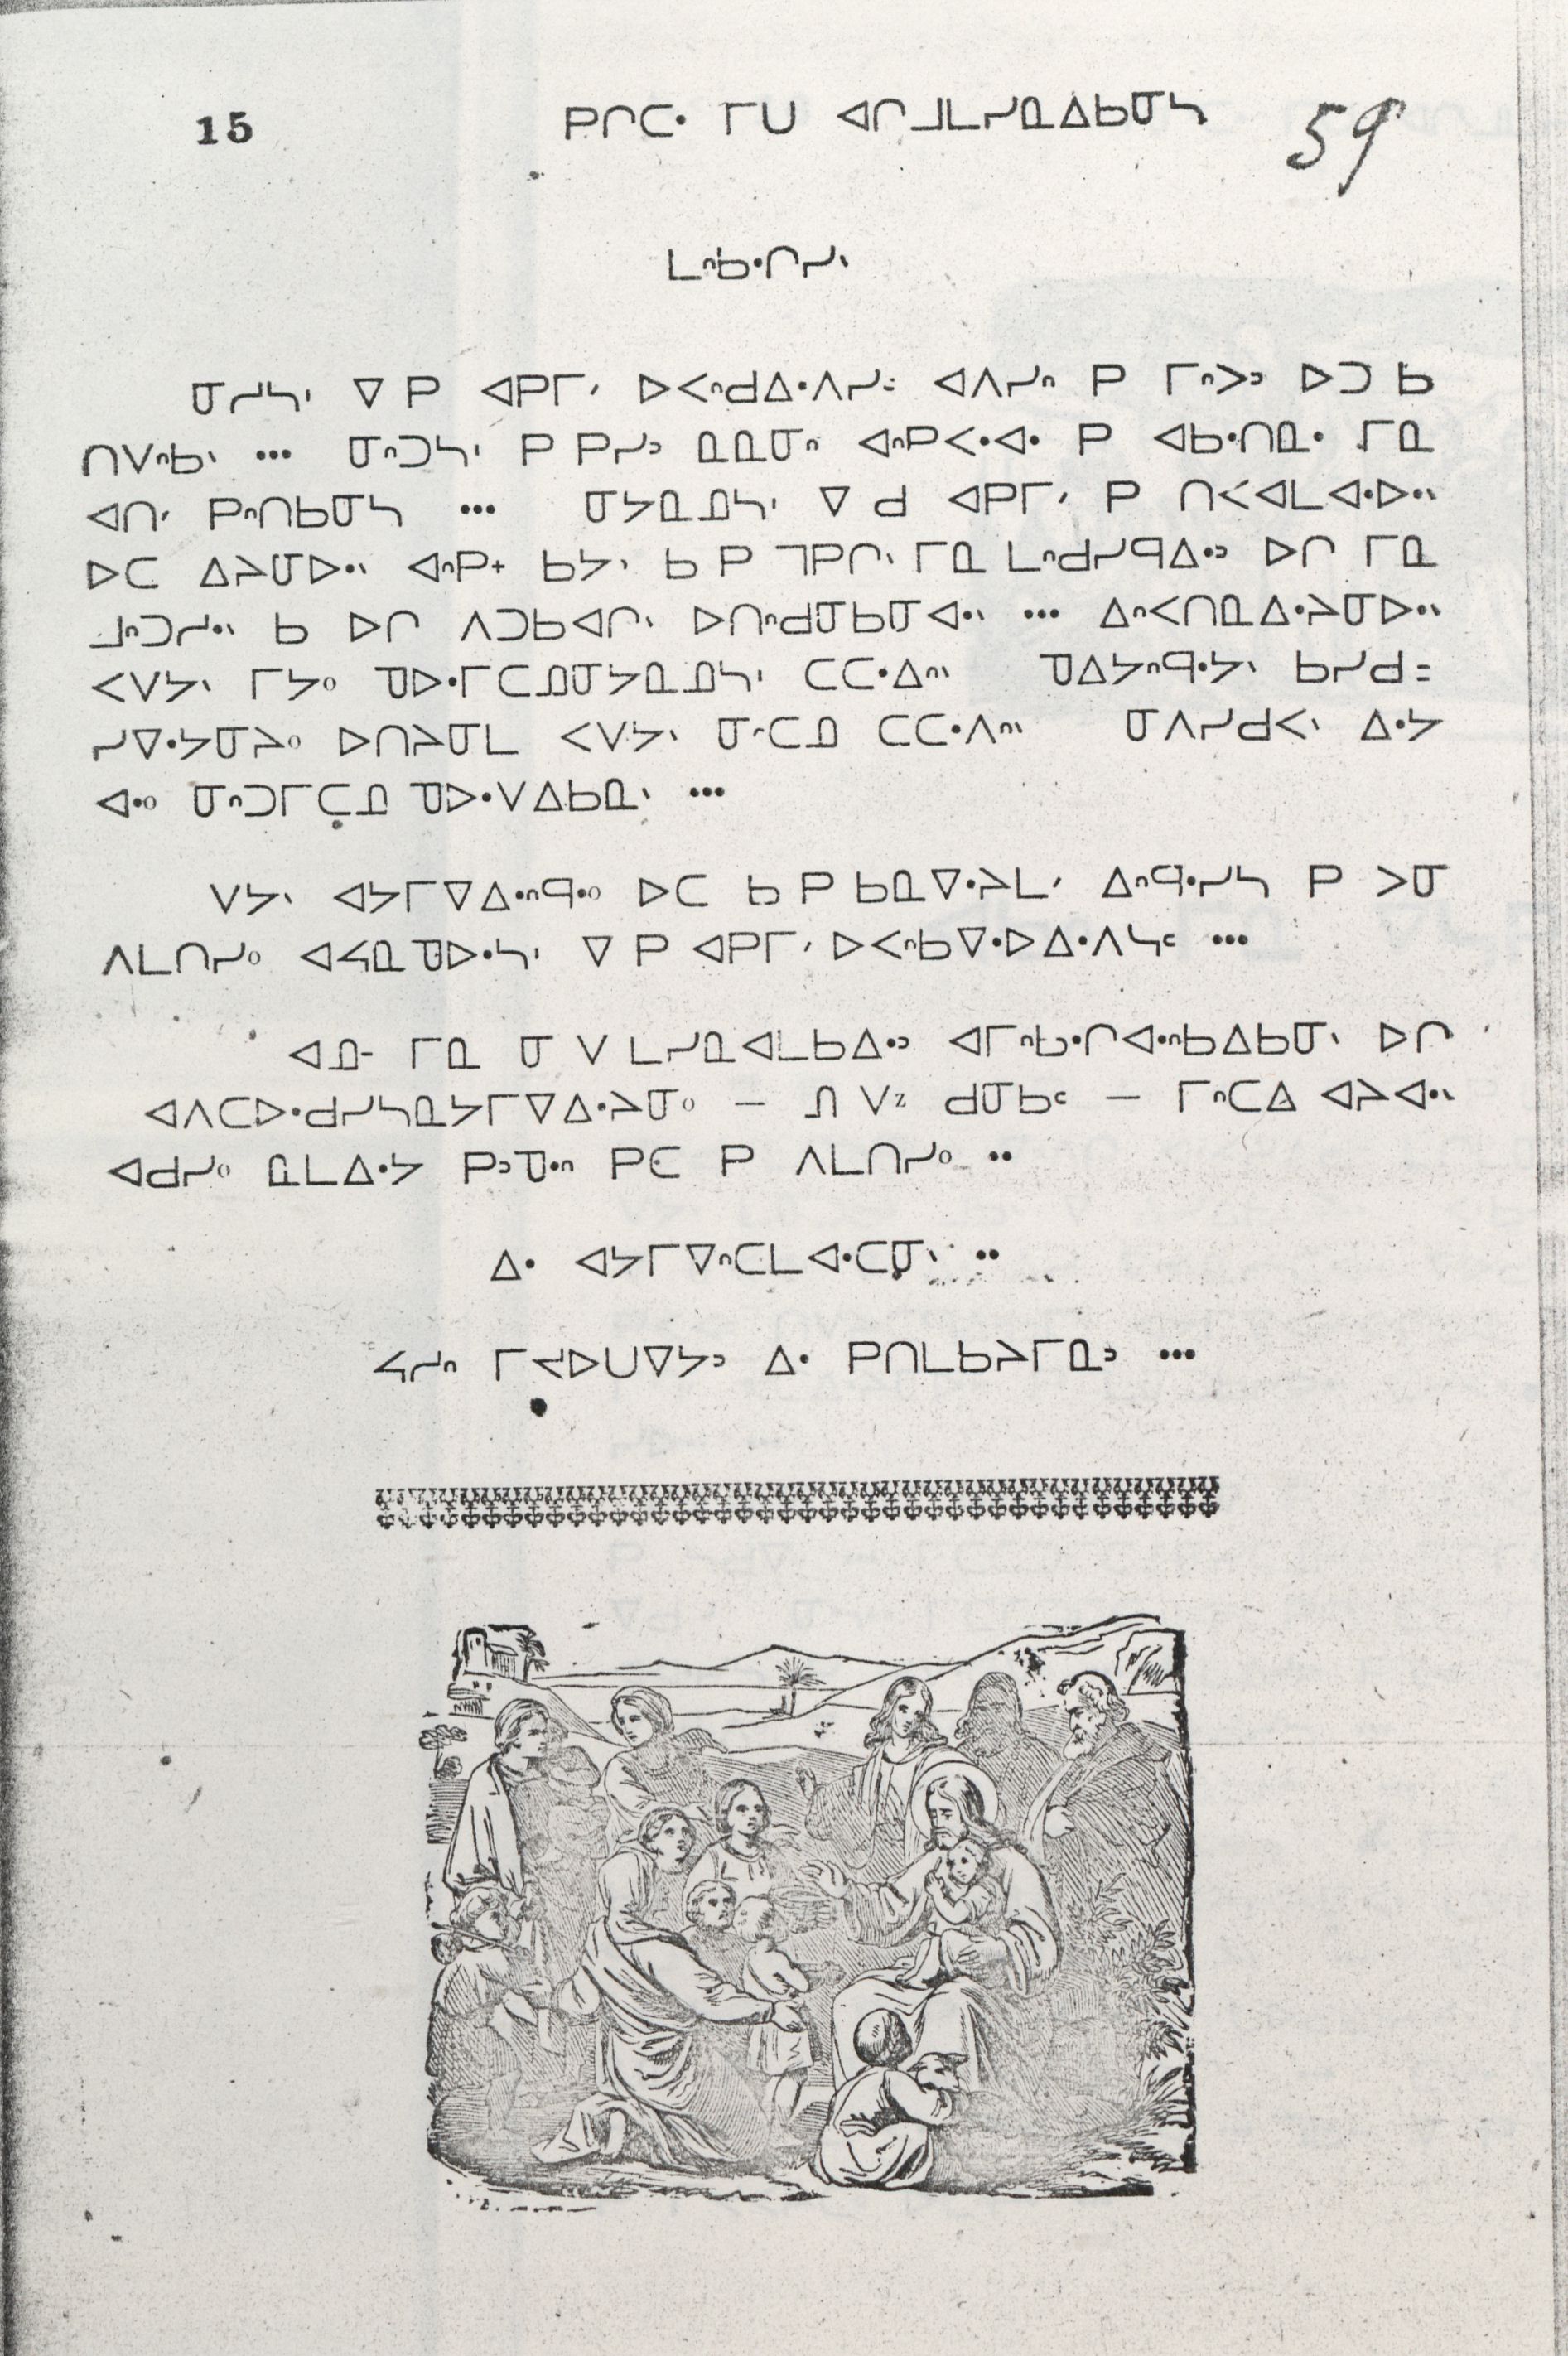 15 ᑭᒋᑕᐧ ᒥᑌ ᐊᒋᒧᒪᓯᓇᐃᑲᓂᓴ 59
ᒪᐢᑲᐧᒋᓯᐠ
ᓂᓯᓴᐟ ᐁ ᑭ ᐊᑭᒥᐟ ᐅᐸᐢᑯᐃᐧᐱᓯᒼ ᐊᐱᓯᐢ ᑭ ᒥᐢᐳᐣ ᐅᑐ ᑲ
ᑎᐯᐢᑲᐠ ᓂᐢᑐᓴᐟ ᑭ ᑭᓯᐣ ᓇᓇᓂᐢ ᐊᐢᑭᐸᐧᐊᐧ ᑭ ᐊᑲᐧᑎᓇᐧ ᒥᓇ
ᐊᑎᐟ ᑭᐢᑎᑲᓂᓴ ᓂᔭᓇᓄᓴᐟ ᐁ ᑯ ᐊᑭᒥᐟ ᑭ ᑎᐸᐊᒪᐊᐧᐅᐧᐠ
ᐅᑕ ᐃᔨᓂᐅᐧᐠ ᐊᐢᑭᕀ ᑲᔭᐠ ᑲ ᑭ ᒣᑭᒋᐠ ᒥᓇ ᒪᐢᑯᓯᑫᐃᐧᐣ ᐅᒋ ᒥᓇ
ᒧᐢᑐᓱᐧᐠ ᑲ ᐅᒋ ᐱᑐᑲᐊᒋᐠ ᐅᑎᐢᑯᓂᑲᓂᐊᐧᐠ ᐃᐢᐸᑎᓇᐃᐧᔨᓂᐅᐧᐠ
ᐸᐯᔭᐠ ᒥᔭᐤ ᑫᐅᐧᒥᑕᓄᓂᔭᓇᓄᓴᐟ ᑕᑕᐧᐃᐢᐠ ᑫᐃᔭᐢᑫᐧᔭᐠ ᑲᓯᑯ
ᓯᐁᐧᔭᓂᔨᐤ ᐅᑎᔨᓂᒪ ᐸᐯᔭᐠ ᓂᐨᑕᓄ ᑕᑕᐧᐱᐢᐠ ᓂᐱᓯᑯᐸᐠ ᐃᐧᔭ
ᐊᐧᐤ ᓂᐢᑐᒥᑕᓄ ᑫᐅᐧᐯᐃᑲᓇᐠ
ᐯᔭᐠ ᐊᔭᒥᐁᐃᐧᐢᑫᐧᐤ ᐅᑕ ᑲ ᑭ ᑲᓇᐁᐧᔨᒪᐟ ᐃᐢᑫᐧᓯᓴ ᑭ ᐳᓂ
ᐱᒪᑎᓯᐤ ᐊᔕᓇ ᑫᐅᐧᓴᐟ ᐁ ᑭ ᐊᑭᒥᐟ ᐅᐸᐢᑲᐁᐧᐅᐃᐧᐱᓴᑦ
ᐊᓄᐨ ᒥᓇ ᓂ ᐯ ᒪᓯᓇᐊᒪᑲᐃᐧᐣ ᐊᒥᐢᑲᐧᒋᐊᐧᐢᑲᐃᑲᓂᐠ ᐅᒋ
ᐊᐱᑕᐅᐧᑯᓯᓴᓇᔭᒥᐁᐃᐧᔨᓂᐤ — ᒥᐢᑕᐃ ᐊᔨᐊᐧᐠ
ᐊᑯᓯᐤ ᓇᒪᐃᐧᔭ ᑭᐣᑫᐧᐢ ᑭᑕ ᑭ ᐱᒪᑎᓯᐤ
ᐃᐧ ᐊᔭᒥᐁᐢᑕᒪᐊᐧᑕᓂᐠ
ᔕᓱᐢ ᒥᔪᐅᑌᐁᔭᐣ ᐃᐧ ᑭᑎᒪᑲᔨᒥᓇᐣ